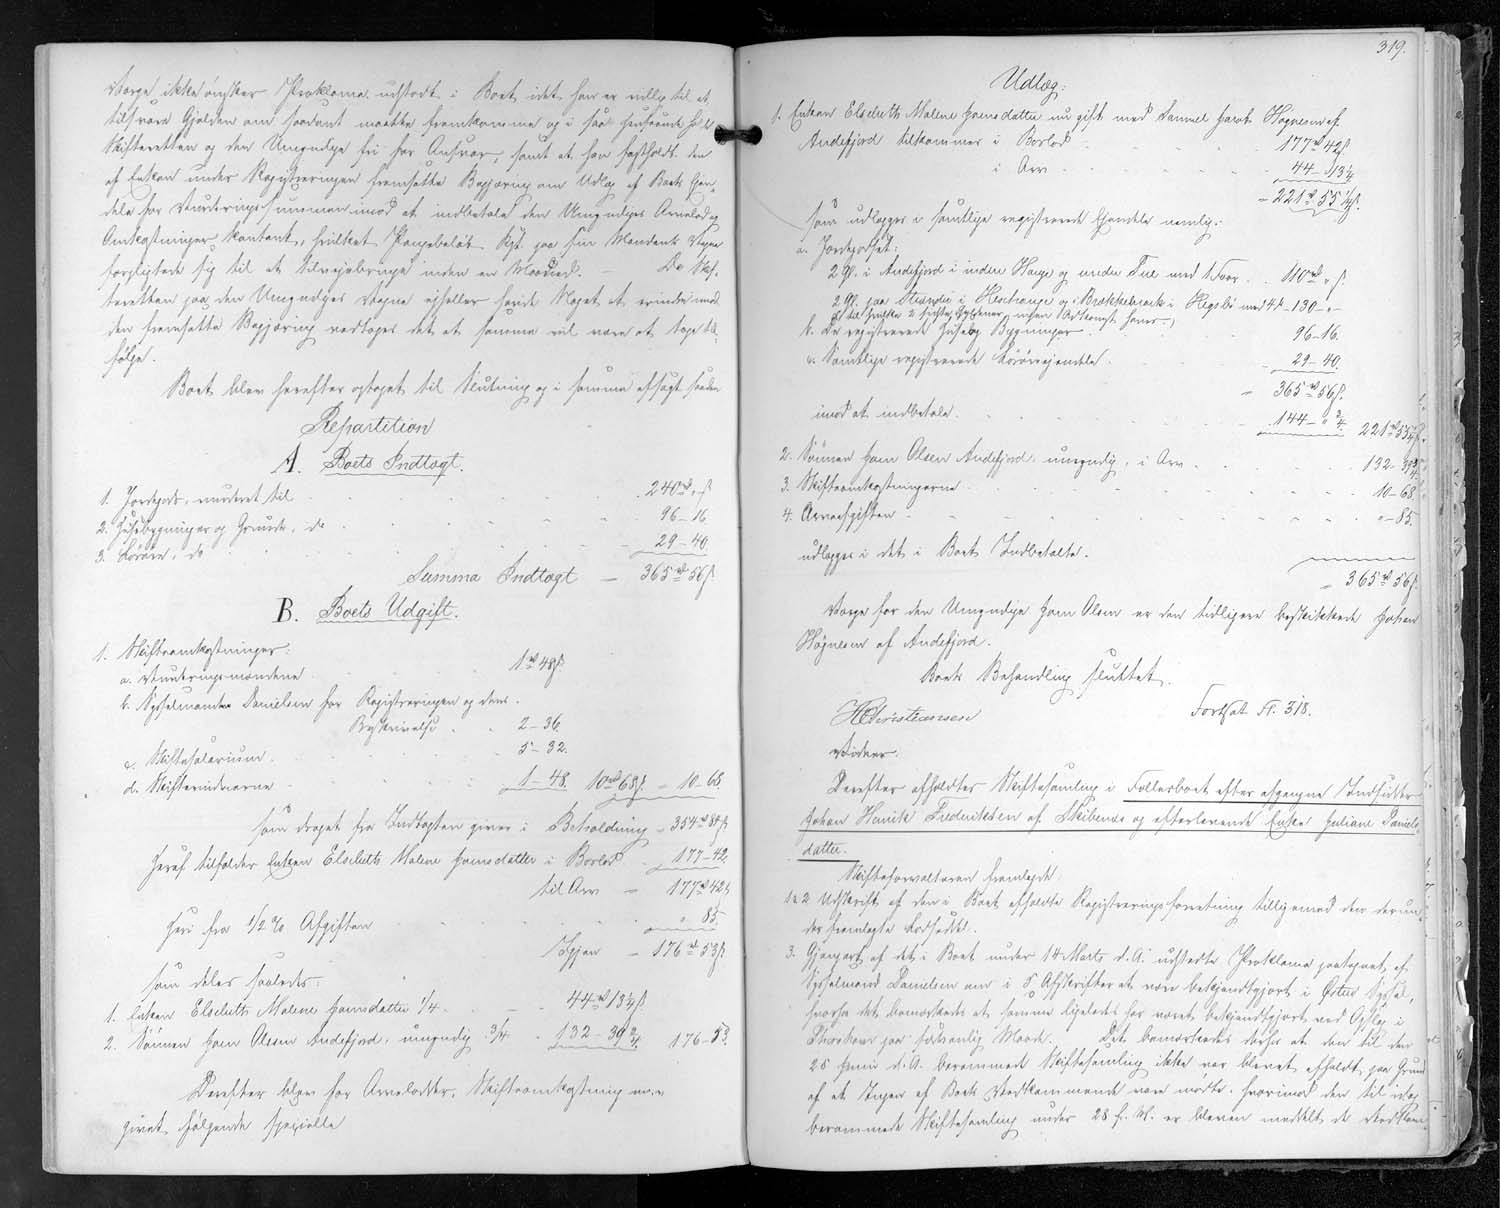 Værge ikke ønsker Proklama udstedt i Boet idet han er villig til at
tilsvare Gjælden om saadant maatte fremkomme og i saa Henseende holde
Skifteretten og den Umyndige fri for Ansvar, samt at han fastholdt den
af Enken under Registreringen fremsatte Begjæring om Udlæg af Boets Eien-
dele for Vurderingssummen imod at indbetale den Umyndiges Arvelod og
Omkostninger kontant, hvilket Pengebeløb paa sin Mandants Vegne
forpligtede sig til at tilveiebringe inden en Maaned. — Da Skif-
teretten paa den Umyndiges Vegne eiheller havde Noget at erindre imod
den fremsatte Begjæring vedtoges det at samme vil være at tage til-
følge.
Boet blev herefter optaget til Slutning og i samme afsagt saadan
Repartition
A. Boets Indtægt.
1. Jordegods, vurderet til 240 rd " s
2. Husebygninger og Grunde, do 96 - 16
3. Løsøre, do 29 - 40
Summa Indtægt — 365 rd 56 s
B. Boets Udgift.
1. Skifteomkostninger:
a. Vurderingsmændene 1 rd 48 s
b. Sysselmand Danielsen for Registreringen og dens
Beskrivelse 2 - 36.
c. Skiftesalarium. 5 - 32.
d. Skiftevidnerne 1 - 48. 10 rd 68 s = 10 - 68.
som draget fra Indtægten giver i Beholdning = 354 rd 84 s
Heraf tilfalder Enken Elsebeth Malene Joensdatter i Boslod 177 - 42
til Arv — 177 rd 42 s
Heri fra 1/2 % Afgiften " 85
Igjen — 176 rd 53 s
som deles saaledes:
1. Enken Elsebeth Malene Joensdatter 1/4 - 44 rd 13 1/4 s
2. Sønnen Joen Olesen Andefjord, umyndig 3/4 - 132 - 39 3/4 176 - 53
Derefter blev for Arvelodder, Skifteomkostning m.v.
givet følgende specielle
319.
Udlæg:
1. Enken Elsebeth Malene Joensdatter nu gift med Samuel Jacob Høgnesen af
Andefjord tilkommer i Boslod 177 rd 42 s
i Arv 44 - 13 1/4
= 221 rd 55 1/4 s
som udlægges i samtlige registrerede Eiendele nemlig:
a. Jordegodset:
2 Gl. i Andefjord i indere Hauge og under Tue med 1 Foer. 110 rd " s
2 Gl. paa Strendir i Heschauge og i Brekkebrock i Hegnbø med 4 - 130 - "
b. De registrerede Huse og Bygninger 96 - 16.
c. Samtlige registrerede Løsøreeiendele 29 - 40.
= 365 rd 56 s
imod at indbetale. 144 - " 3/4 221 rd 55 1/4 s
2. Sønnen Joen Olsen Andefjord, umyndig, i Arv 132 - 39 3/4
3. Skifteomkostningerne 10 - 68
4. Arveafgiften " - 85.
udlægges i det i Boet Indbetalte.
= 365 rd 56 s
Værge for den Umyndige Joen Olsen er den tidligere beskikkede Johan
Høgnesen af Andefjord.
Boets Behandling sluttet.
HChristiansen Fortsat Fl. 318.
Vidner.
Derefter afholdtes Skiftesamling i Fællesboet efter afgangne Indsidder
Johan Henrik Frederiksen af Skibenæs og efterlevende Enke Juliane Daniels-
datter.
Skifteforvalteren fremlagde
1 & 2 Udskrift af den i Boet afholdte Registreringsforretning tilligemed den derun-
der fremlagte Lodseddel.
3. Gjenpart af det i Boet under 14 Marts d. A. udstedte Proklama paategnet af
Sysselmand Danielsen om i 8 Afskrifter at være bekjendtgjort i Østerø Syssel,
hvorhos det bemærkedes at samme ligeledes har været bekjendtgjort ved Opslag i
Thorshavn paa sædvanlig Maade. Det bemærkedes derhos at den til den
25 Juni d. A. berammede Skiftesamling ikke var blevet afholdt paa Grund
af at Ingen af Boets Vedkommende vare mødte, hvorimod den til idag
berammede Skiftesamling under 28 f. M. er bleven meddelt de Vedkom-